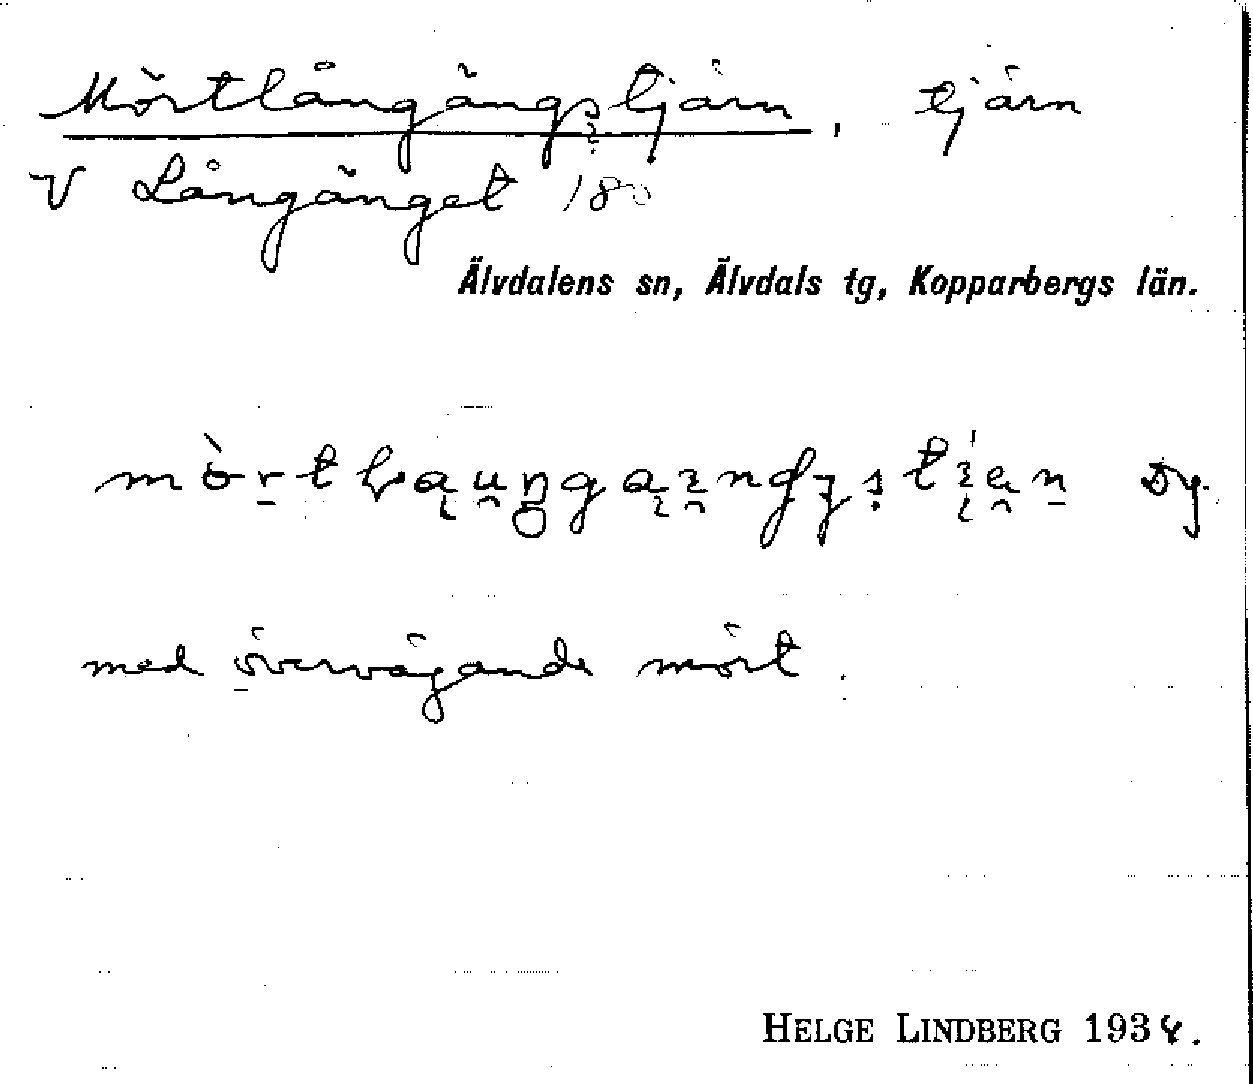 Mörtlångängstjärn, tjärn
V Långänget 180
Älvdalens sn, Älvdals tg, Kopparbergs län.
Dy.
med övervägande mört.
HELGE LINDBERG 1934.